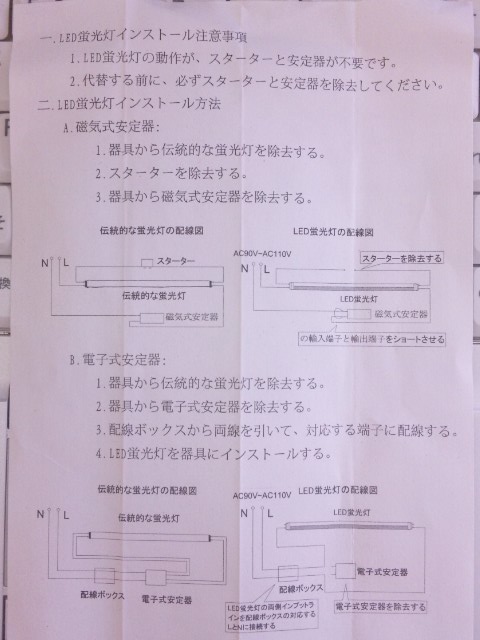 一.LED蛍光灯インストール注意事項
1.LED蛍光灯の動作が、スターターと安定器が不要です。
2.代替する前に、必ずスターターと安定器を除去してください。
二.LED蛍光灯インストール方法
A.磁気式安定器:
1.器具から伝統的な蛍光灯を除去する。
2.スターターを除去する。
3.器具から磁気式安定器を除去する。
伝統的な蛍光灯の配線図
N L
スターター
伝統的な蛍光灯
磁気式安定器
LED蛍光灯の配線図
AC90V-AC110V
N L
スターターを除去する
LED蛍光灯
磁気式安定器
の輸入端子と輸出端子をショートさせる
B.電子式安定器:
1.器具から伝統的な蛍光灯を除去する。
2.器具から電子式安定器を除去する。
3.配線ボックスから両線を引いて、対応する端子に配線する。
4.LED蛍光灯を器具にインストールする。
伝統的な蛍光灯の配線図
N L
伝統的な蛍光灯
配線ボックス
電子式安定器
LED蛍光灯の配線図
AC90V-AC110V
N L
LED蛍光灯
配線ボックス
電子式安定器
LED蛍光灯の両側インプットラ
インを配線ボックスの対応する
LとNに接続する
電子式安定器を除去する